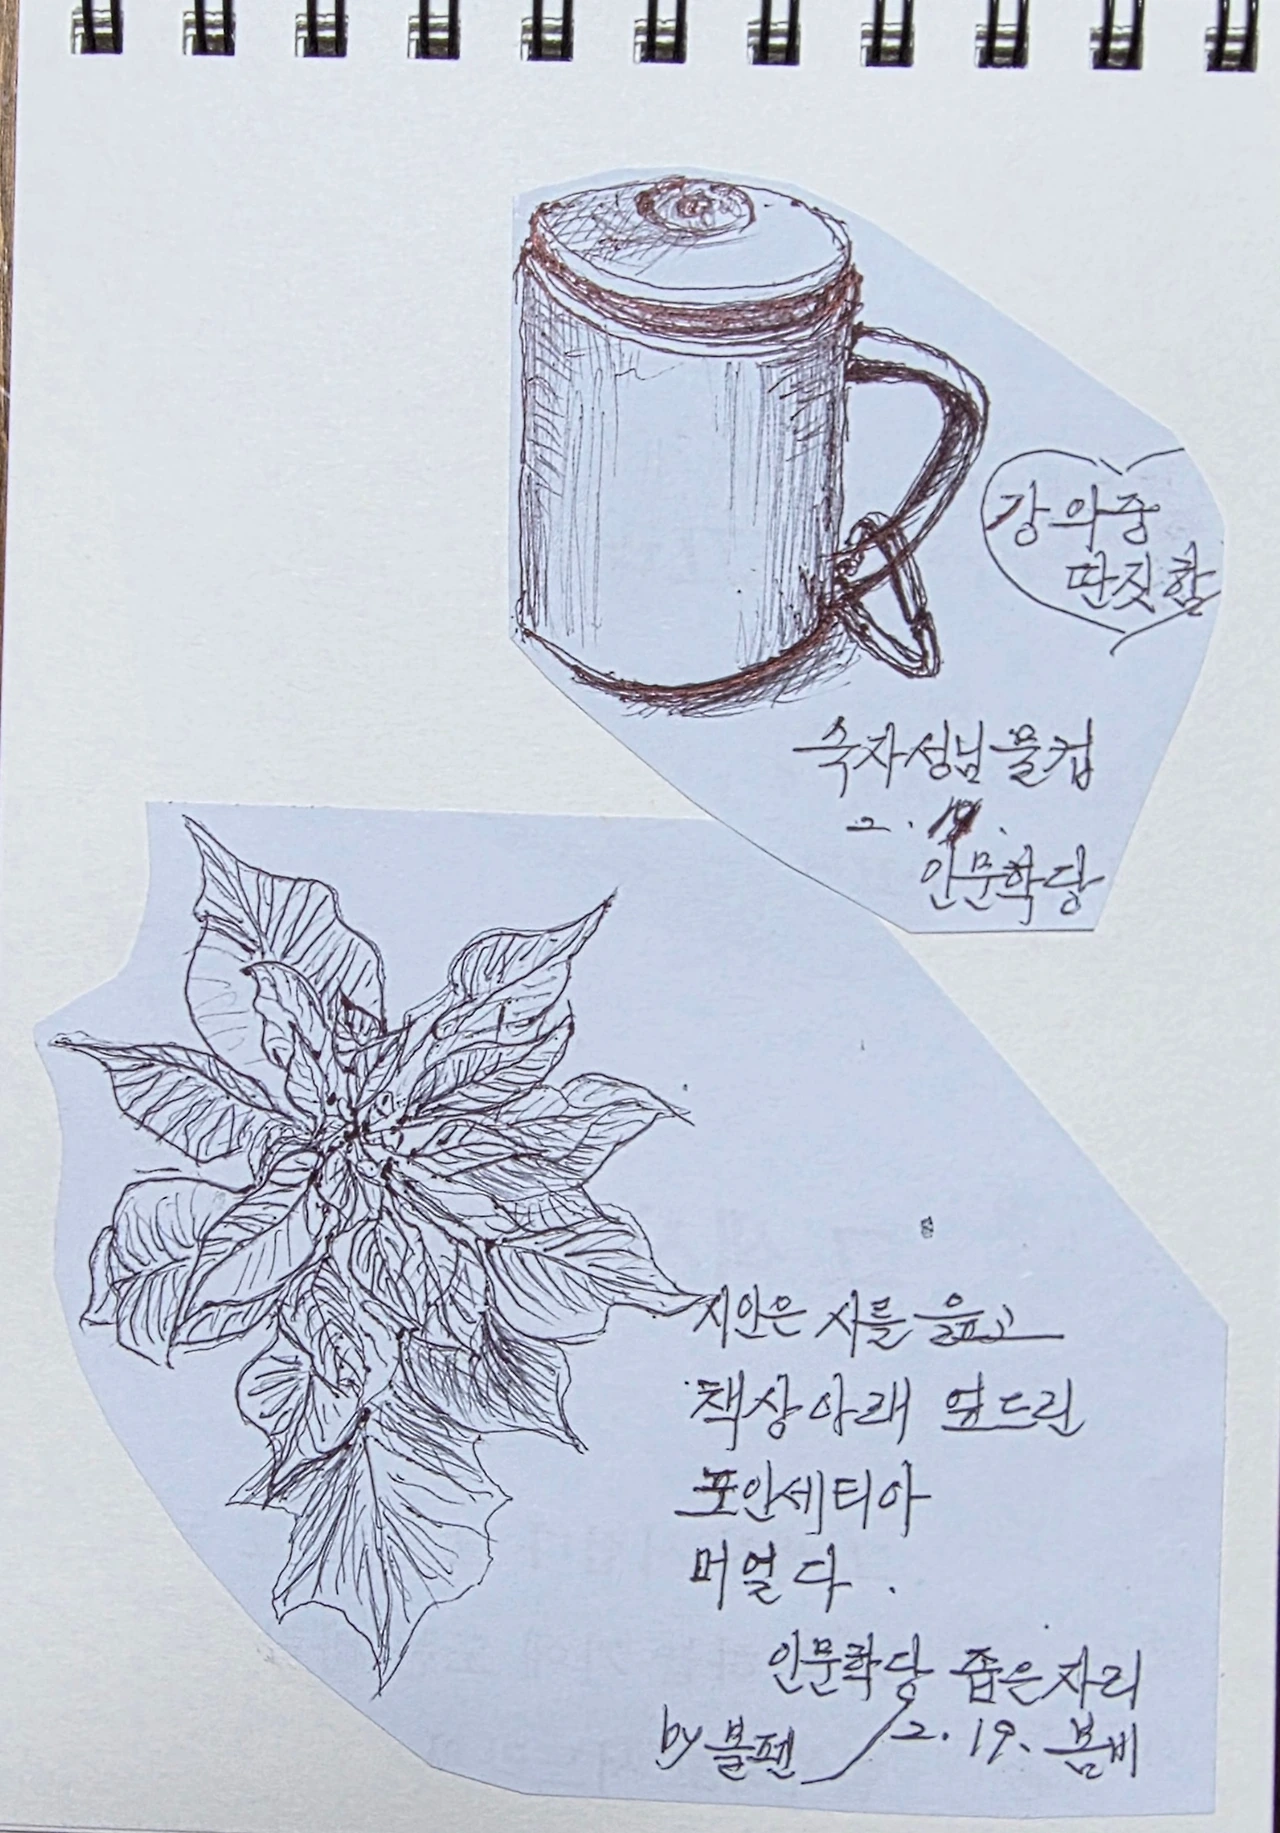 강의중
딴짓함
숙자성님 물컵
2. 19.
인문학당
시안은 시를 읊고
책상 아래 엎드린
포인세티아
머얼다.
인문학당 좁은자리
by 볼펜 2. 19. 봄비